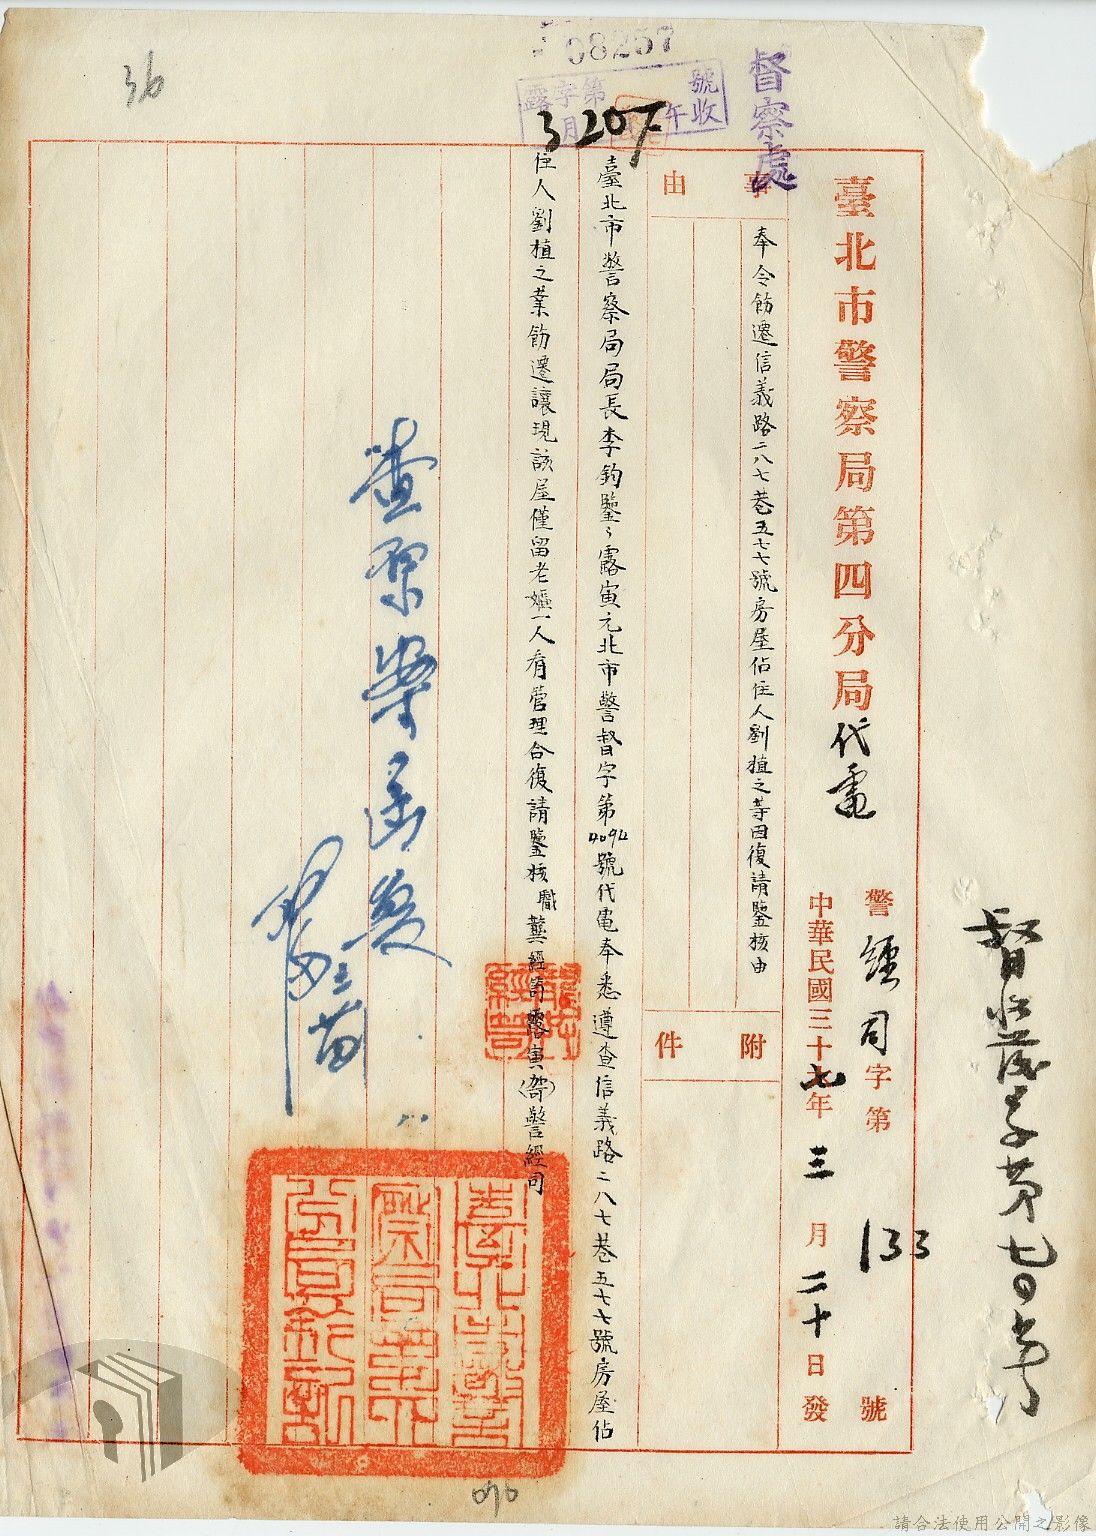 36
08257
露字第 號
月 午收
3 20 F
督察處
臺北市警察局第四分局代電
警經司字第133號
中華民國三十七年三月二十日發
事由
奉令飭遷信義路二八七巷五七七號房屋佔住人劉植之等因復請鑒核由
附件
臺北市警察局局長李鈞鑒：露寅元北市警督字第4094號代電奉悉遵查信義路二八七巷五七七號房屋佔
住人劉植之業飭遷讓現該屋僅留老嫗一人看管理合復請鑒核職龔經笥露寅(智)警經司
查原案函復
臺北市警察局第四分局鈐記
070
請合法使用公開之影像